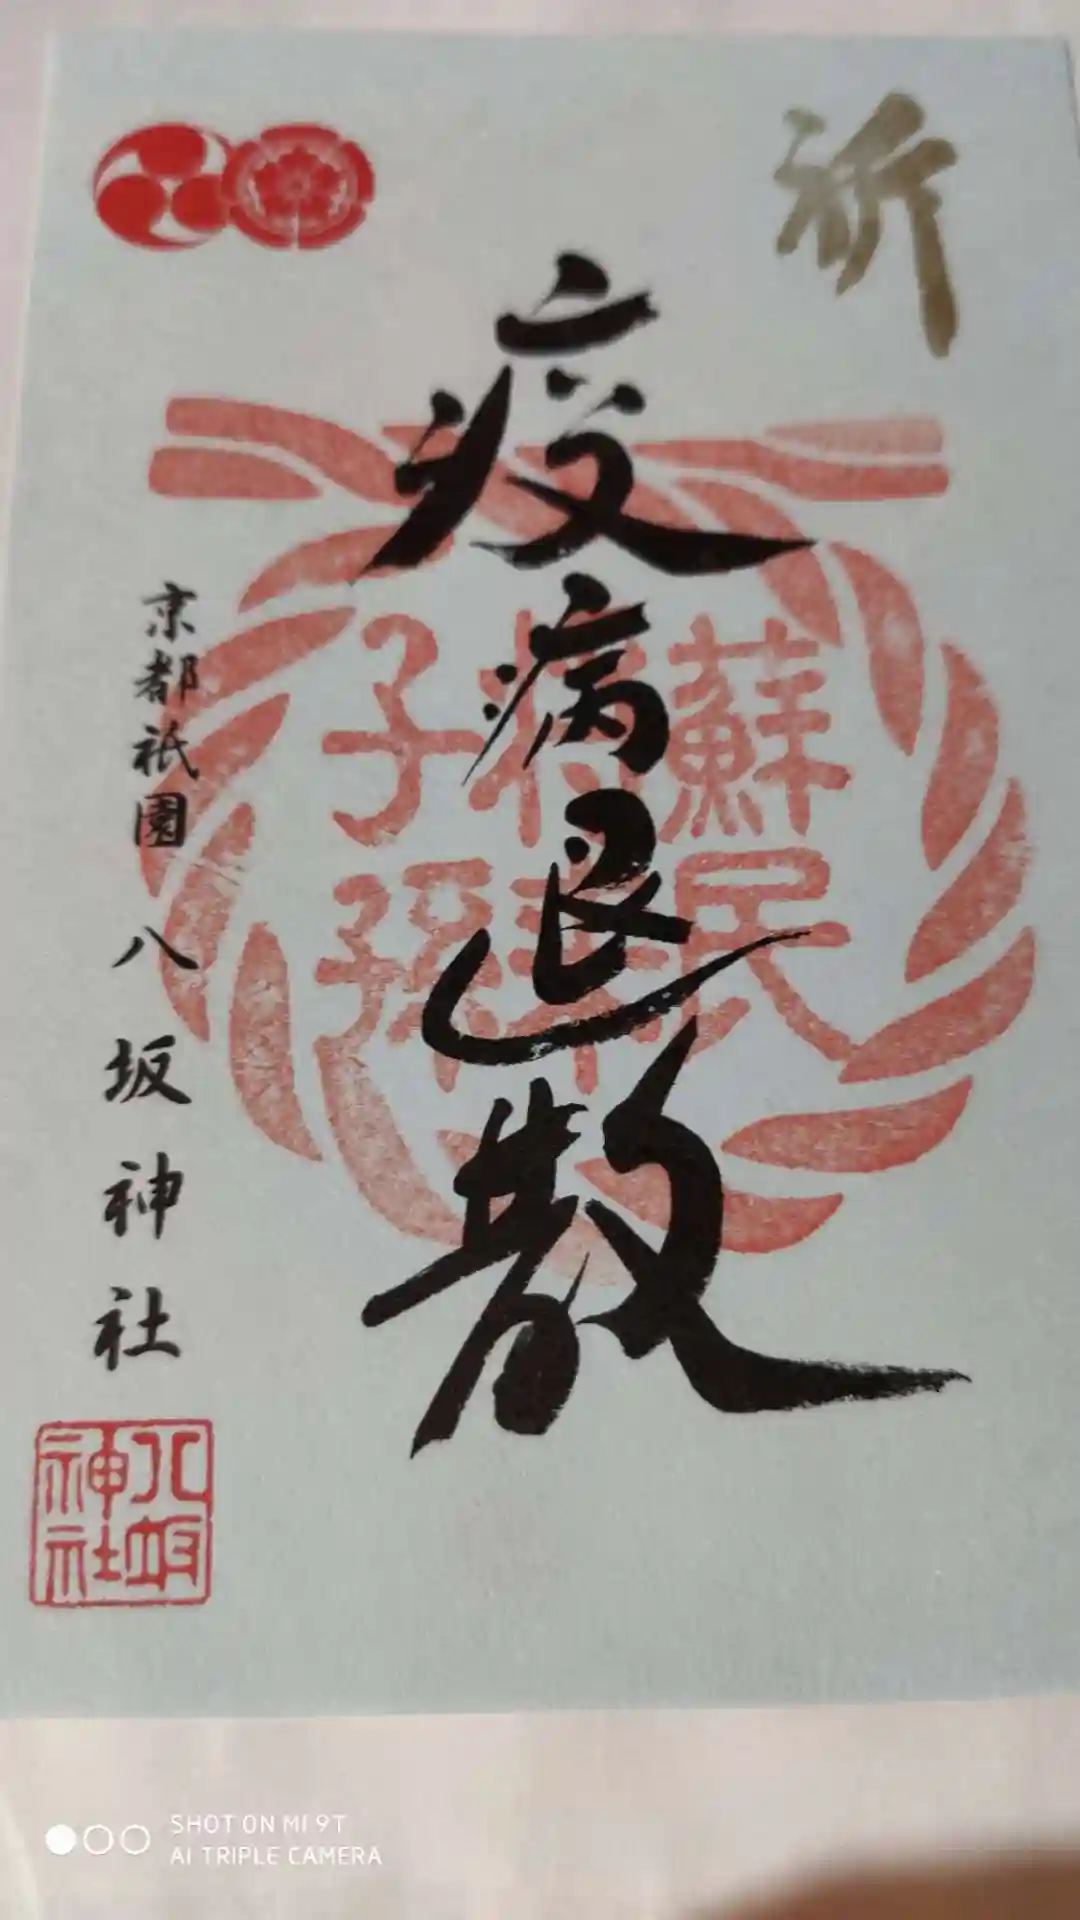 祈
疫病退散
蘇民
将来
子孫
也
京都祇園 八坂神社
八坂
神社
SHOT ON MI 9T
AI TRIPLE CAMERA